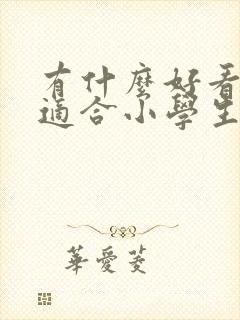 有什麼好看
適合小學生
華愛菱